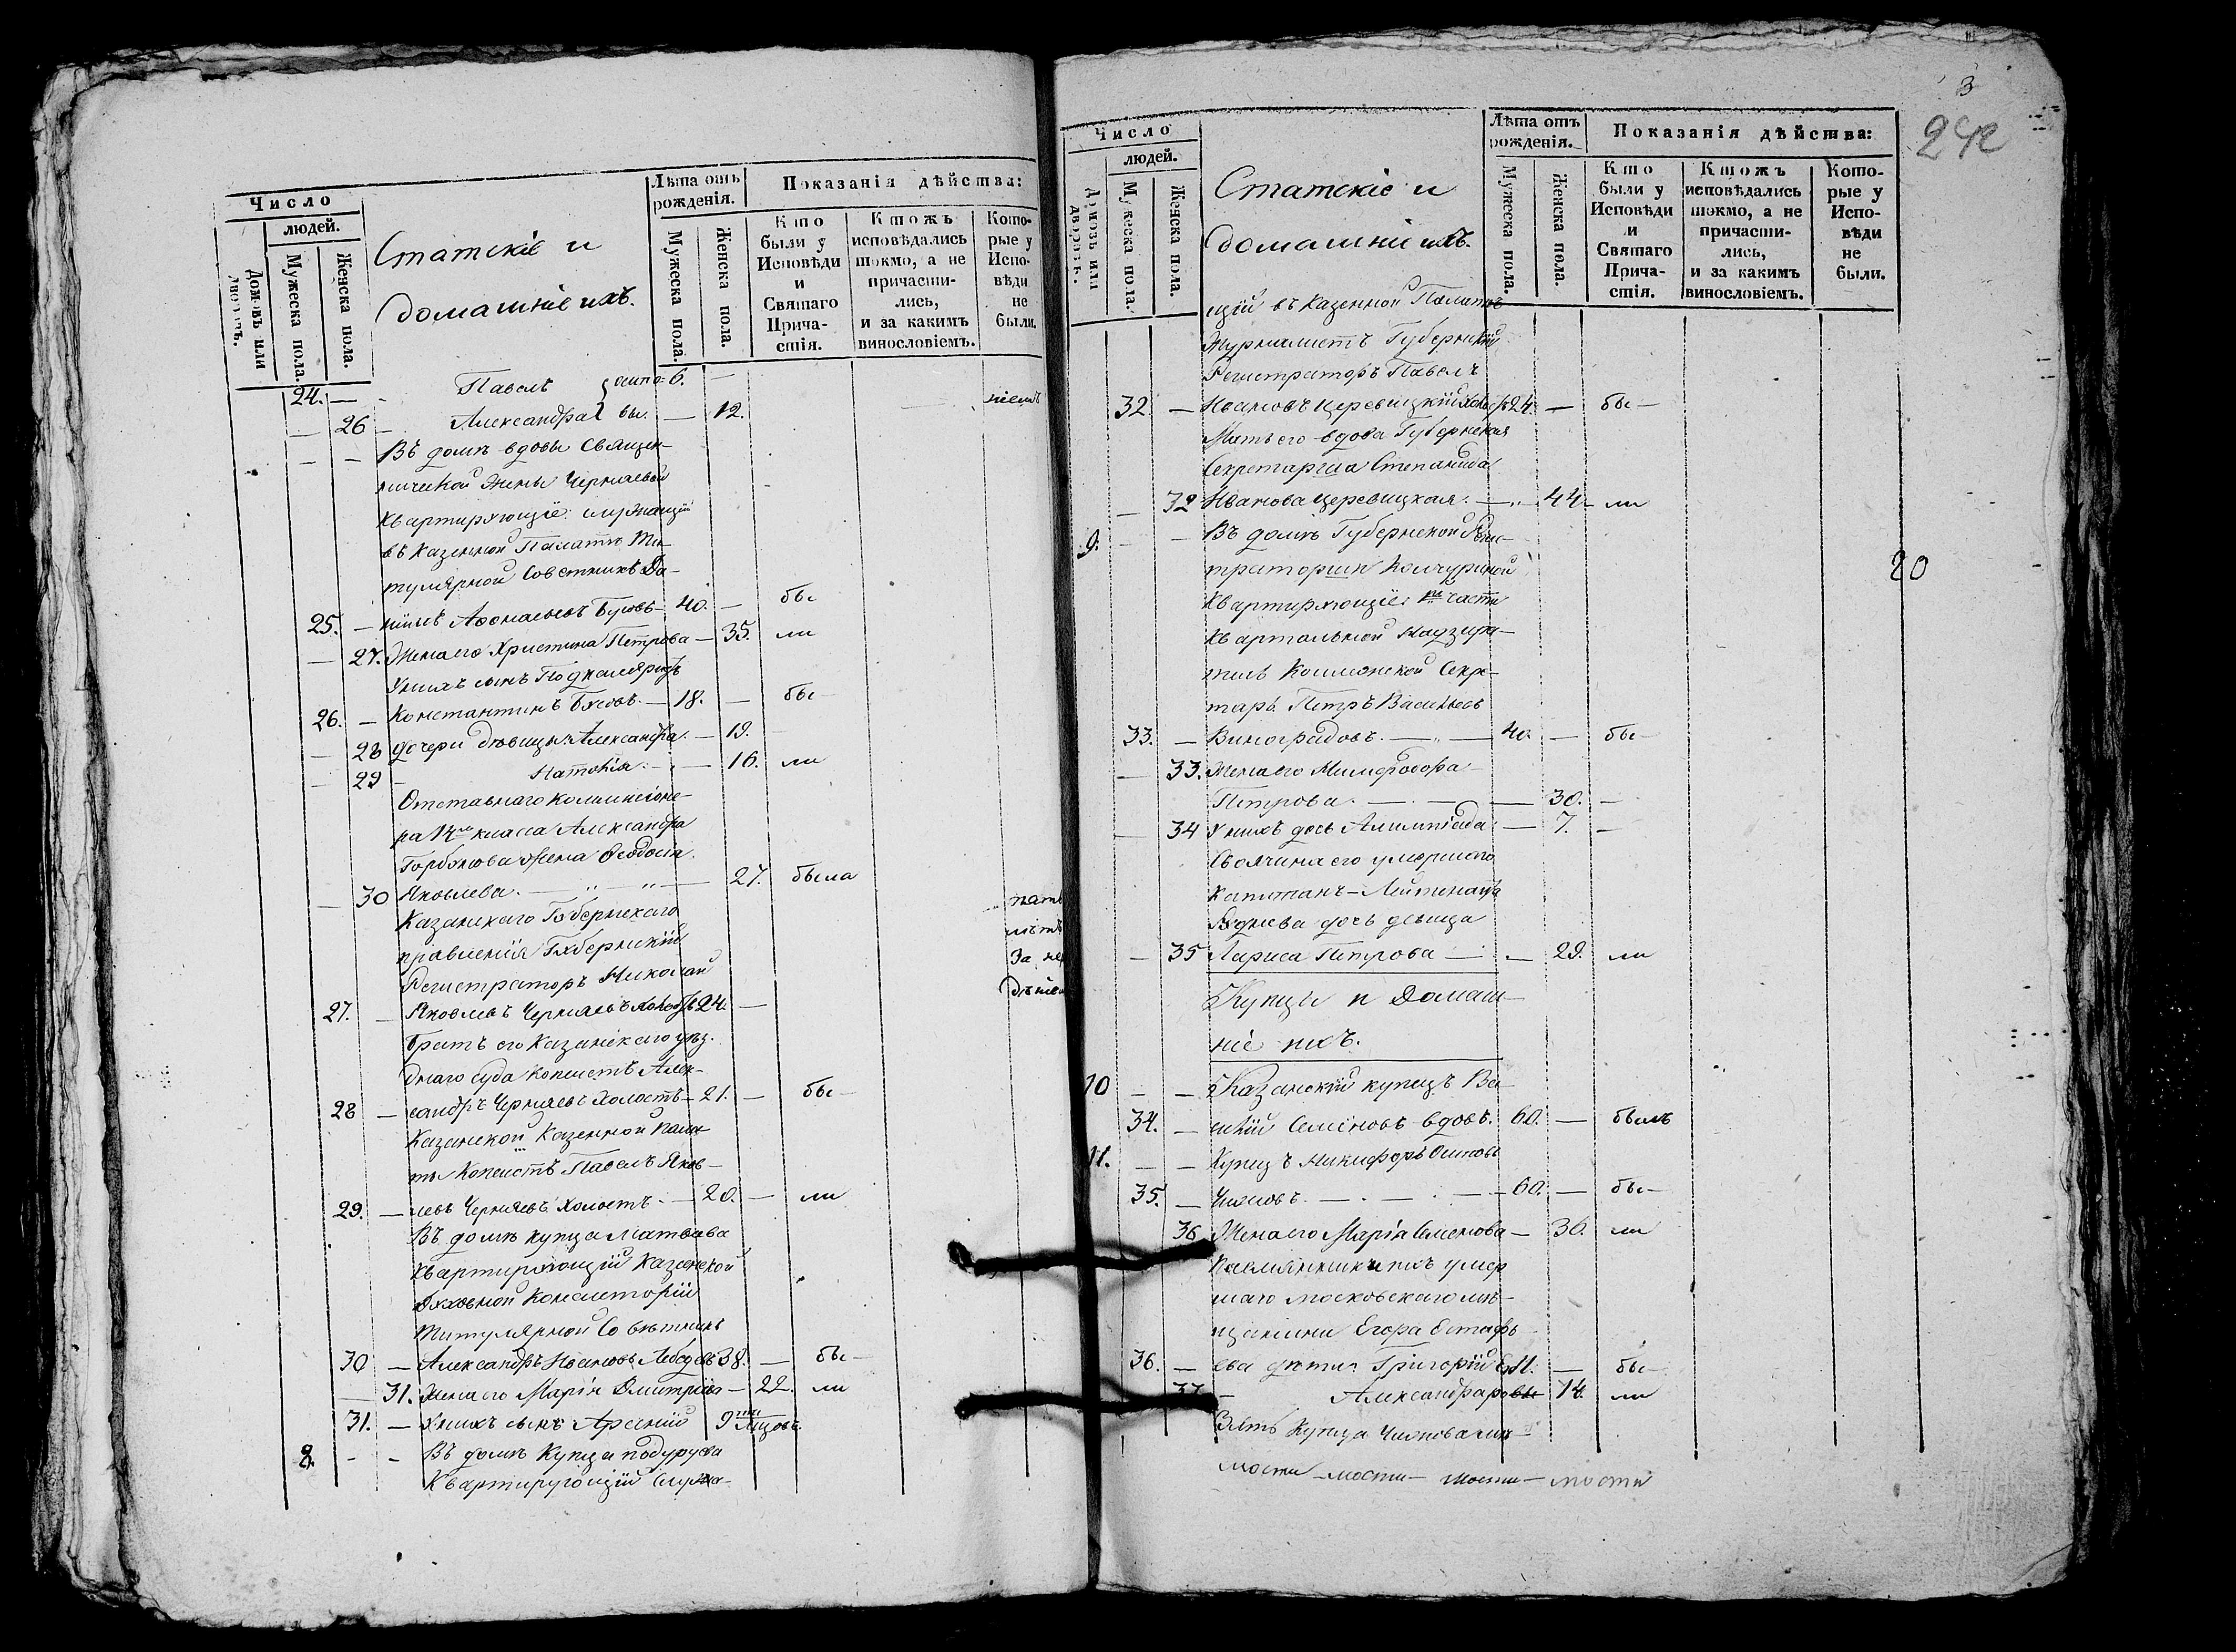 Число
людей.
Домовъ или дворовъ.
Мужеска пола.
Женска пола.
Статскіе и
домашніе ихъ.
Лѣта отъ рожденія.
Мужеска пола.
Женска пола.
Показанія дѣйства:
Кто были у Исповѣди и Святаго Прича-стія.
Ктожъ исповѣдались токмо, а не причасти-лись, и за какимъ винословіемъ.
Кото-рые у Испо-вѣди не были.
24. — Павелъ 6. —
— 26 — Александра вы. — 12.
— — Въ домѣ вдовы Священ-
нической жены Черняевой
квартирующіе: служащій
въ Казенной Палатѣ Ти-
тулярной Совѣтникъ Да-
25. — ніилъ Афонасьевъ — 40. — бы
— 27. Жена его Христина Петрова — 35. ли
У нихъ сынъ
26. — Константинъ — 18. — бы —
— 28 дочери дѣвицы: Александра — 19.
— 29 — Наталія — 16. ли
Отставнаго Коммисіоне-
ра 14го класса Александра
жена Ѳеодосія
— 30 Яковлева — 27. была
Казанскаго Губернскаго
правленія Губернскій
Регистраторъ Николай
27. — Яковлевъ Черняевъ 24. —
братъ его Казанскаго уѣз-
днаго суда копіистъ Алек-
28 — сандръ Черняевъ холостъ — 21. — бы —
Казанской Казенной пала-
ты Копіистъ Павелъ Яков-
29. — левъ Черняевъ холостъ — 20. — ли
Въ домѣ купца Матвѣева
квартирующій Казанской
Духовной Консисторіи
Титулярной Совѣтникъ
30 — Александръ Ивановъ Лебедевъ 38. — бы —
— 31. Жена его Марія Дмитріева — 22. ли
31. — У нихъ сынъ Арсеній 9ти
8. — — Въ домѣ Купца
Квартирующій служа-
3
242
Число
людей.
Домовъ или дворовъ.
Мужеска пола.
Женска пола.
Статскіе и
домашніе ихъ.
Лѣта отъ рожденія.
Мужеска пола.
Женска пола.
Показанія дѣйства:
Кто были у Исповѣди и Святаго Прича-стія.
Ктожъ исповѣдались токмо, а не причасти-лись, и за какимъ винословіемъ.
Кото-рые у Испо-вѣди не были.
щій въ Казенной Палатѣ
Журналистъ Губернскій
Регистраторъ Павелъ
32. — Ивановъ Церевицкій 24. — бы —
Мать его вдова Губернская
Секретарша Степанида
— 32 Иванова Церевицкая — 44 — ли
9. — — Въ домѣ Губернской Регис-
траторши
Квартирующіе: части
Квартальной Надзира-
тель Коллежской Секре-
тарь Петръ Васильевъ
33. — Виноградовъ — 40. — бы —
— 33. Жена его
Петрова — 30. —
— 34 У нихъ дочь Алимпіада — 7. —
Своячина его умершаго
Капитанъ-Лейтенанта
дочь дѣвица
— 35 Лариса Петрова — 29. ли
Купцы и Домаш-
ніе ихъ.
10 — — Казанскій купецъ Ва-
34. — силій Семеновъ вдовъ. 60. — былъ
11. — — Купецъ Никифоръ Осиповъ
35. — Чиляновъ — 60. — бы —
36 Жена его Марія Семенова — 36. ли
Племянники ихъ умер
шаго Московскаго мѣ-
щанина Егора Естафь-
36. — ева дѣти: Григорій 11. — бы —
37 — Александра 14. ли
Зять Купца
мости — мости — мости — мости
20